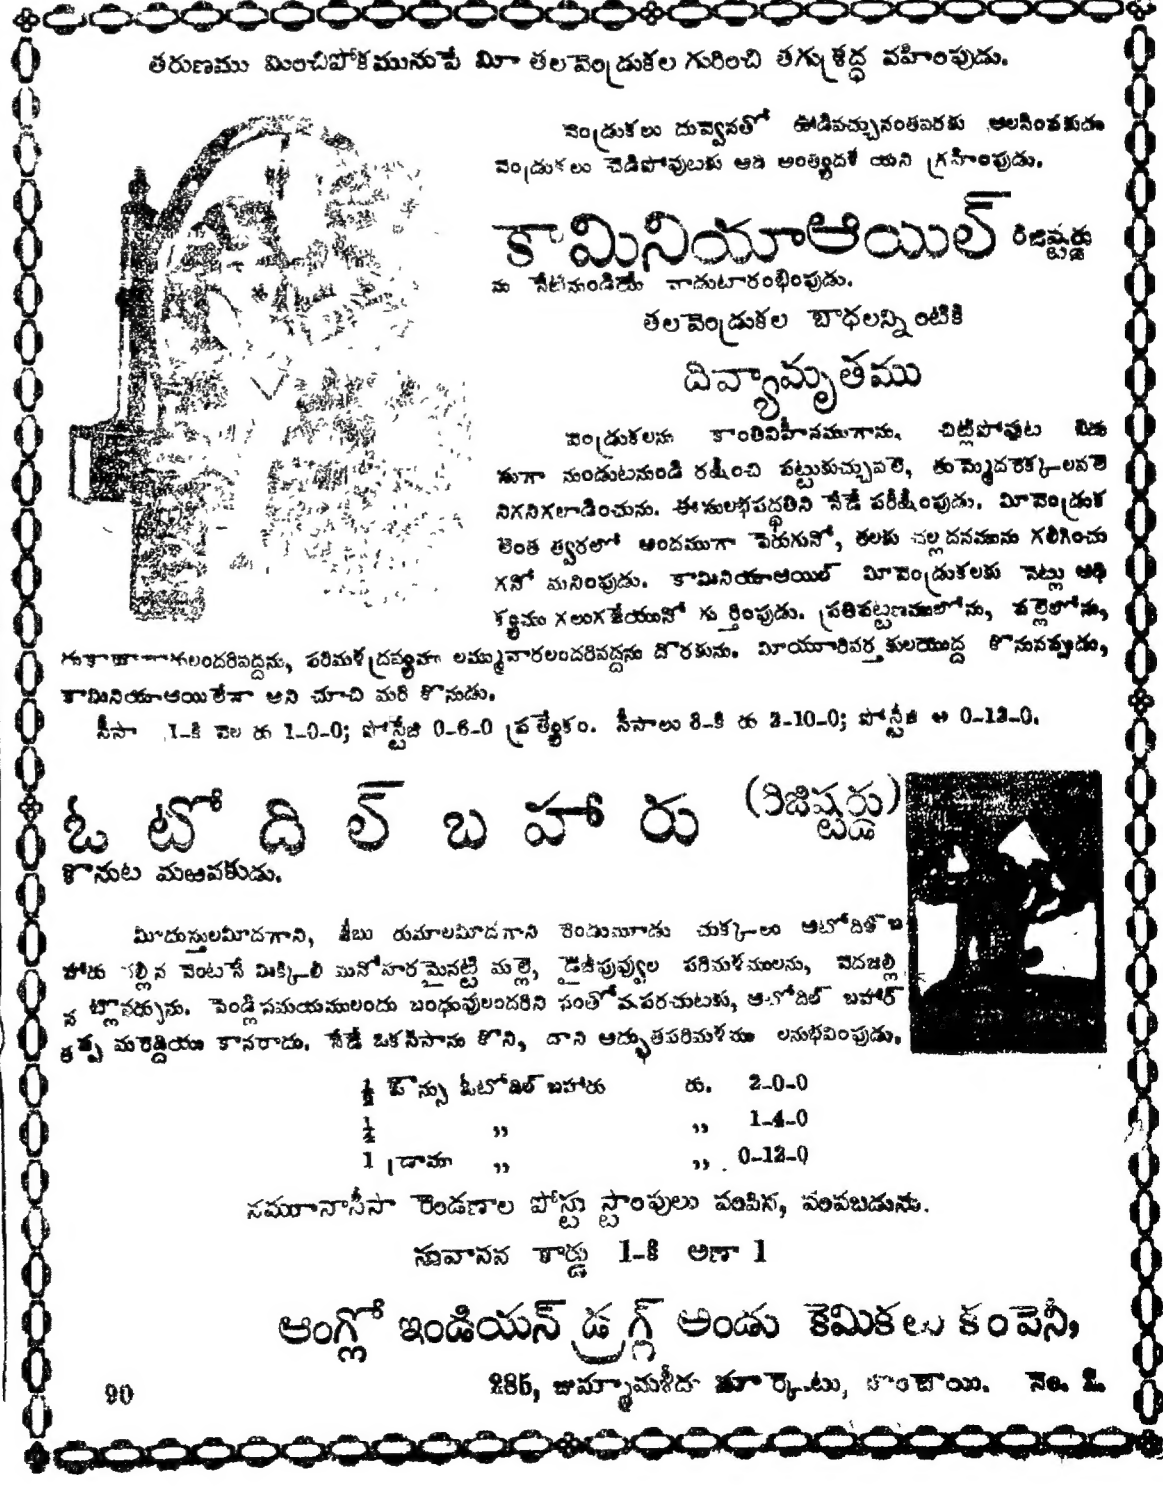 తరుణము మించిపోకమునుపే మీ తలవెండ్రుకల గురించి తగుశ్రద్ధ వహింపుడు.
వెండ్రుకలు దువ్వెనతో ఊడివచ్చునంతవరకు ఆలసింపకుడు
వెండ్రుకలు చెడిపోవుటకు అది అంత్యదశ యని గ్రహింపుడు.
కామినియాఆయిల్ రిజిష్టర్డు
ను నేటినుండియే వాడుటారంభింపుడు.
తలవెండ్రుకల బాధలన్నింటికి
దివ్యామృతము
వెండ్రుకలను కాంతివిహీనముగాను, చిట్లిపోవుట
ముగా నుండుటనుండి రక్షించి పట్టుకుచ్చువలె, తుమ్మెదరెక్కలవలె
నిగనిగలాడించును. ఈసులభపద్ధతిని నేడే పరీక్షింపుడు. మీవెండ్రుక
లెంత త్వరలో అందముగా పెరుగునో, తలకు చల్లదనమును గలిగించు
గనో మనింపుడు. కామినియాఆయిల్ మీవెండ్రుకలకు నెట్లు ఆధి
క్యము గలుగజేయునో గుర్తింపుడు. ప్రతిపట్టణములోను, పల్లెలోను,
పరిమళద్రవ్యము లమ్మువారలందరివద్దను దొరకును. మీయూరివర్తకులయొద్ద కొనునప్పుడు,
కామినియాఆయిలేనా అని చూచి మరి కొనుడు.
సీసా 1-కి వెల రు 1-0-0; పోస్టేజి 0-6-0 ప్రత్యేకం. సీసాలు 3-కి రు 2-10-0; పోస్టేజి అ 0-12-0.
ఓటోదిల్ బహారు (రిజిష్టర్డు)
కొనుట మఱవకుడు.
మీదుస్తులమీదగాని, జేబు రుమాలమీదగాని రెండుమూడు చుక్కలం ఆటోదిల్ బ
హారు చల్లిన వెంటనే మిక్కిలి మనోహరమైనట్టి మల్లె, డైజీపువ్వుల పరిమళములను, వెదజల్లి
న ట్లొనర్చును. పెండ్లిసమయములందు బంధువులందరిని సంతోషపరచుటకు, ఆటోదిల్ బహార్
కప్ప మరెద్దియు కానరాదు. నేడే ఒకసీసాను కొని, దాని అద్భుతపరిమళము లనుభవింపుడు.
½ ఔన్సు ఓటోదిల్ బహారు రు. 2-0-0
½ ,, ,, 1-4-0
1 డ్రాము ,, ,, 0-12-0
నమూనాసీసా రెండణాల పోస్టు స్టాంపులు పంపిన, పంపబడును.
సువాసన కార్డు 1-కి అణా 1
ఆంగ్లో ఇండియన్ డ్రగ్గ్ అండు కెమికలు కంపెనీ,
285, జుమ్మామశీదు మార్కెటు, బొంబాయి. నెం. 2.
90